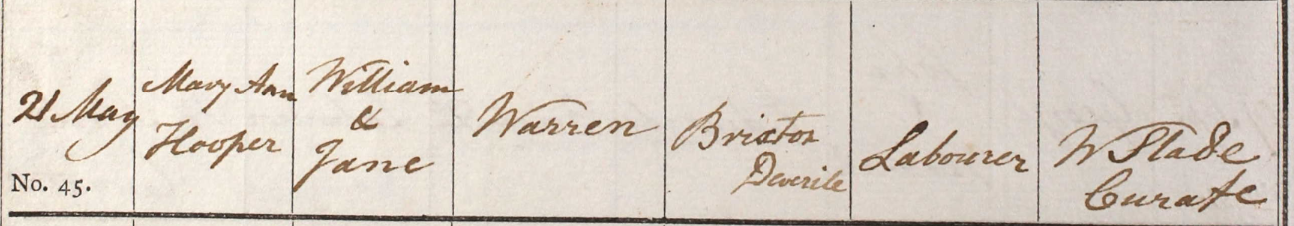 21 May
No. 45.
Mary Ann
Hooper
William
&
Jane
Warren
Brixton
Deverile
Labourer
W Slade
Curate